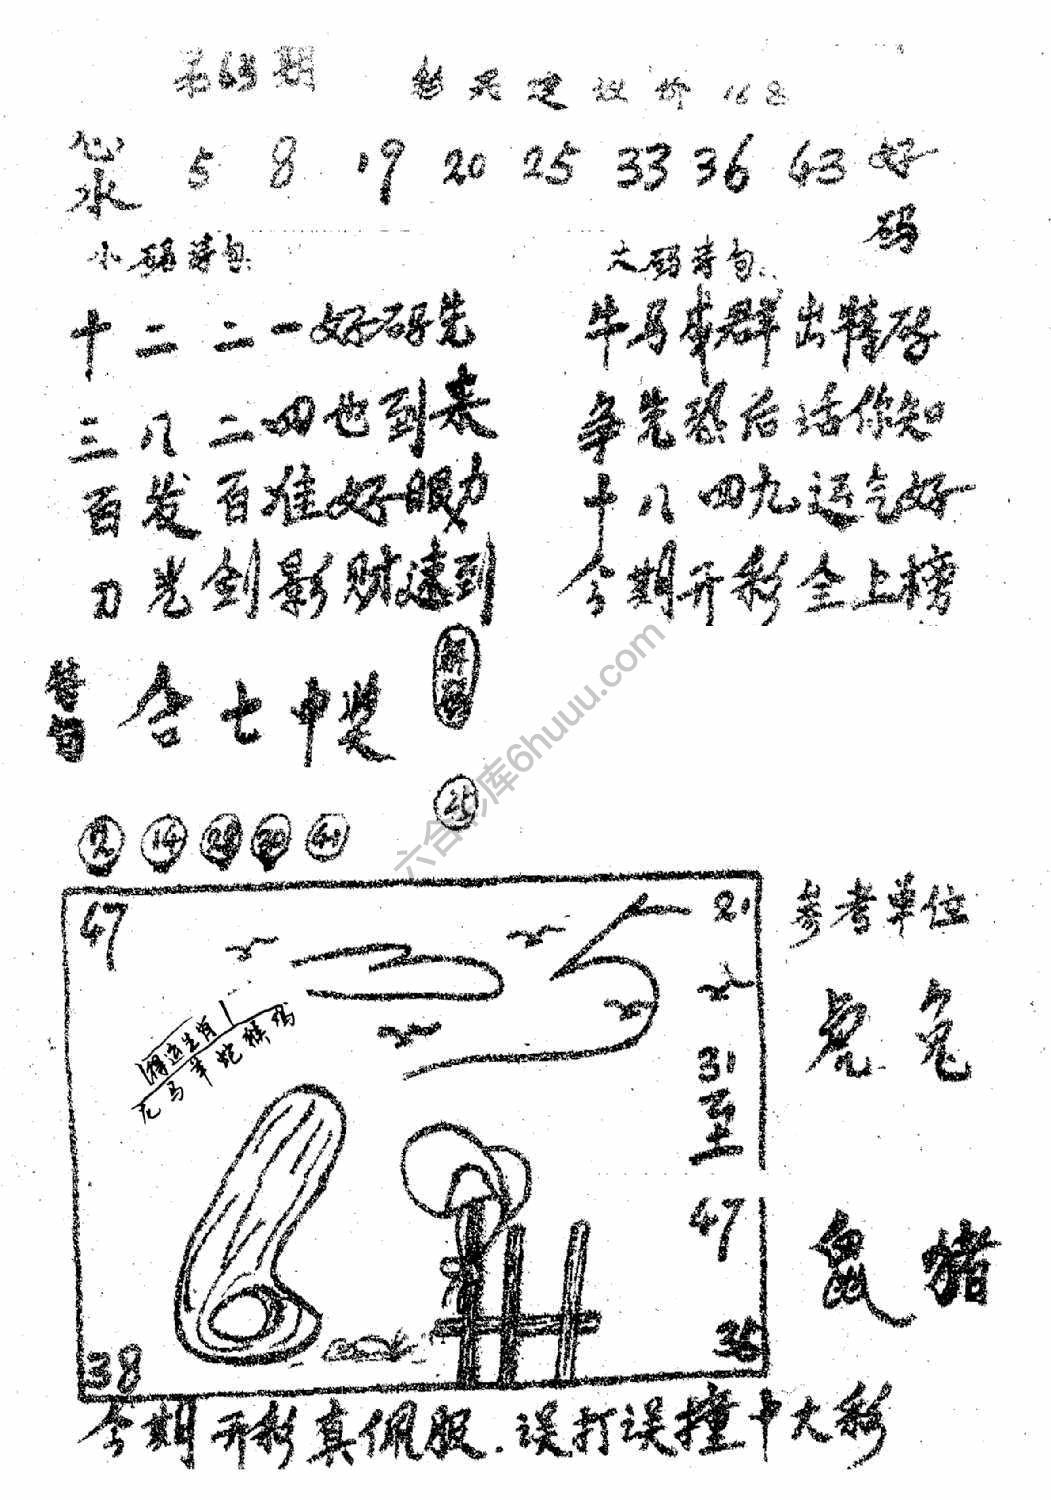 第63期 彩民建议价168
心水 5 8 19 20 25 33 36 43 好码
小码诗句 大码诗句
十二二一好码先
三八二四也到来
百发百准好眼力
刀光剑影财速到
牛马成群出特码
争先恐后话你知
十八四九运气好
今期开彩全上榜
特句 合七中奖
25
2 14 28 30 40
47 21
得运生肖
龙马羊蛇猴鸡
31至47
38 35
参考单位
虎 兔
鼠 猪
今期开彩真佩服.误打误撞中大彩
六合彩库6huuu.com